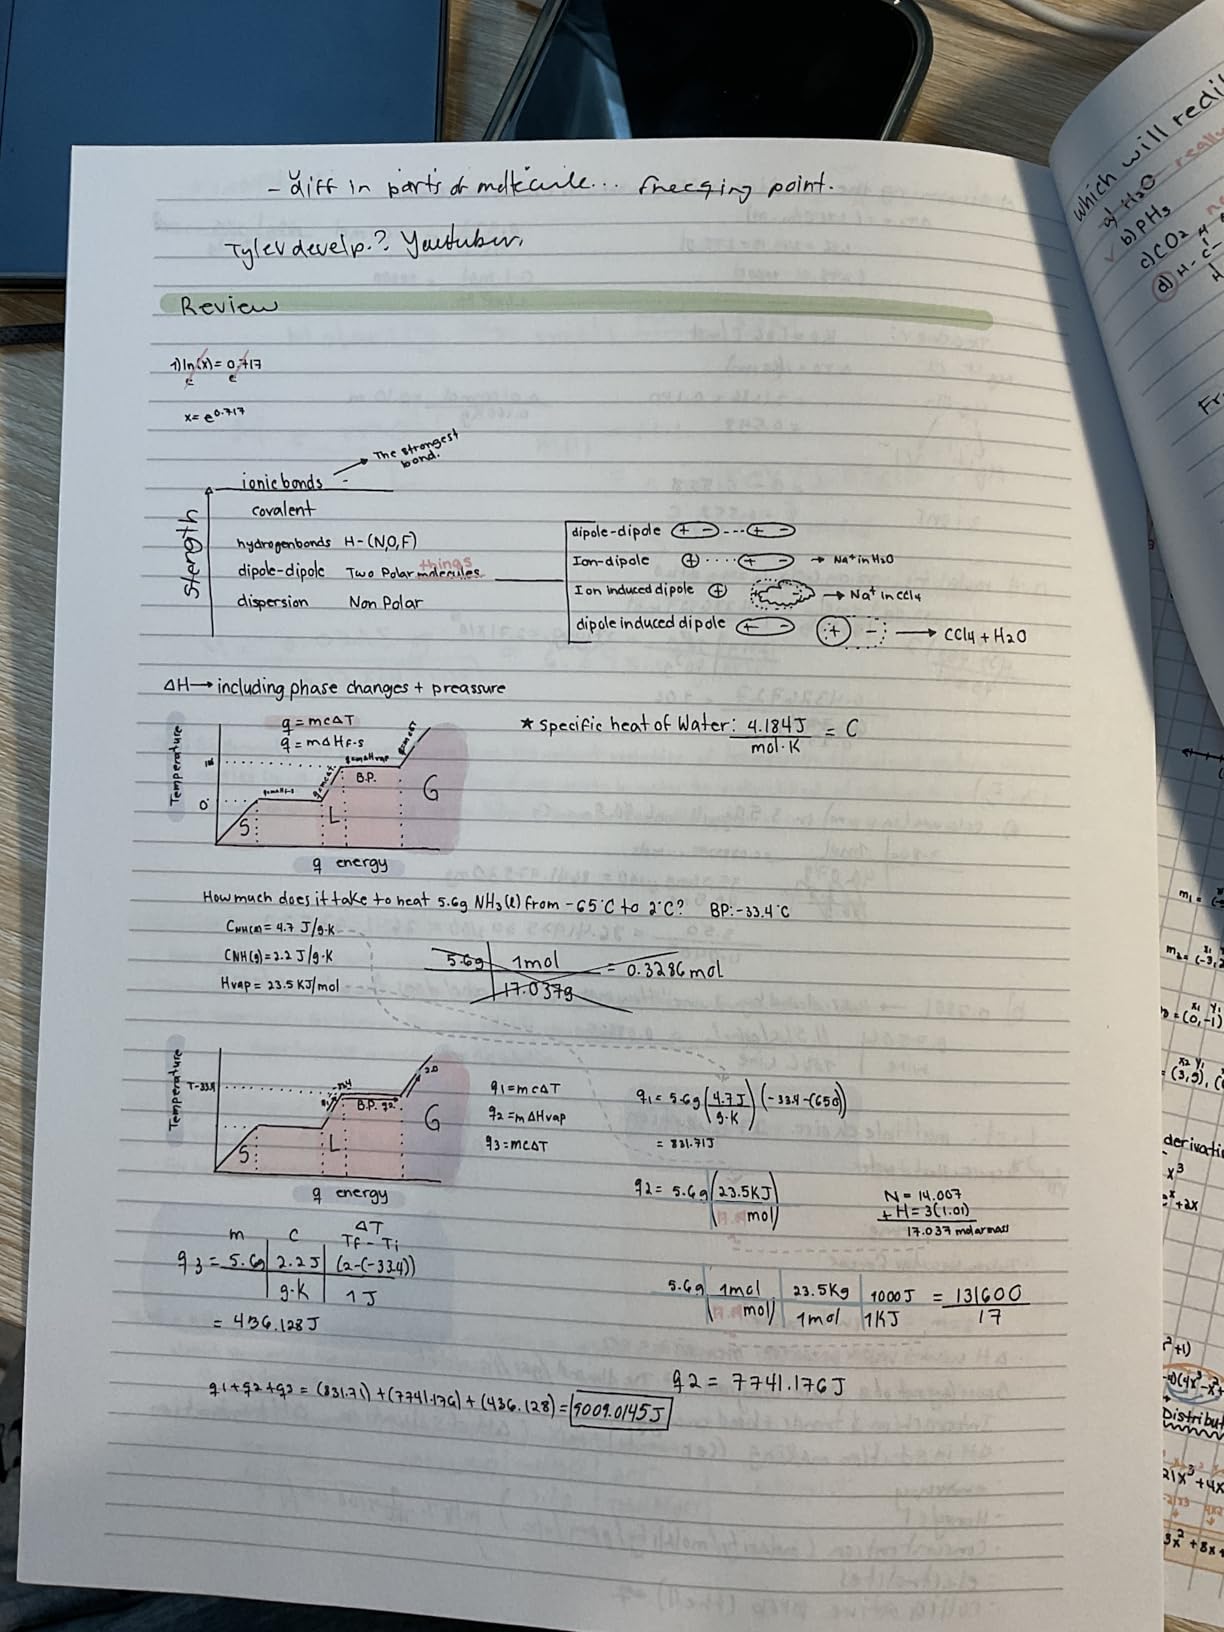 - diff in parts of molecule... freezing point.
Tyler develp.? Youtuber,
Review
1) ln(x) = 0.717
e e
x = e^0.717
The strongest bond.
ionic bonds
covalent
hydrogen bonds H-(N,O,F)
things
dipole-dipole Two Polar molecules
dispersion Non Polar
Strength
dipole-dipole (+ -)---(+ -)
Ion-dipole (+)····(+ -) → Na⁺ in H₂O
Ion induced dipole (+) → Na⁺ in CCl₄
dipole induced dipole (+ -) (+ -) → CCl₄ + H₂O
ΔH → including phase changes + preassure
q = mcΔT
q = mΔHf-s
Temperature
0°
S L B.P. G
q energy
★ specific heat of Water: 4.184 J / mol·K = C
How much does it take to heat 5.6g NH₃(l) from -65°C to 2°C? BP: -33.4°C
C NH(l) = 4.7 J/g·K
C NH(g) = 2.2 J/g·K
Hvap = 23.5 KJ/mol
5.6g | 1mol = 0.3286 mol
17.037g
Temperature
T-33.4
S L B.P. q2 G
q1
2.0
q energy
q1 = mcΔT
q2 = mΔHvap
q3 = mcΔT
q1 = 5.6g (4.7 J / g·K) (-33.4-(65.0))
= 831.71 J
q2 = 5.6g (23.5 KJ / mol)
N = 14.007
+ H = 3(1.01)
17.037 molar mass
m c ΔT
Tf - Ti
q3 = 5.6g | 2.2 J | (2-(-33.4))
g·K | 1 J
= 436.128 J
5.6g | 1mol | 23.5Kg | 1000 J = 131600
mol) | 1mol | 1KJ 17
q2 = 7741.176 J
q1 + q2 + q3 = (831.71) + (7741.176) + (436.128) = 9009.0145 J
which will
a) H₂O really
b) PH₃
c) CO₂
d) H - C -
H
Fr
m₁ =
x₁ y₁
= (0,-1)
x₂ y₂
= (3,5), (
derivati
x³
+2x
²+1)
Distribut
21x³ + 4x
3x² + 8x +